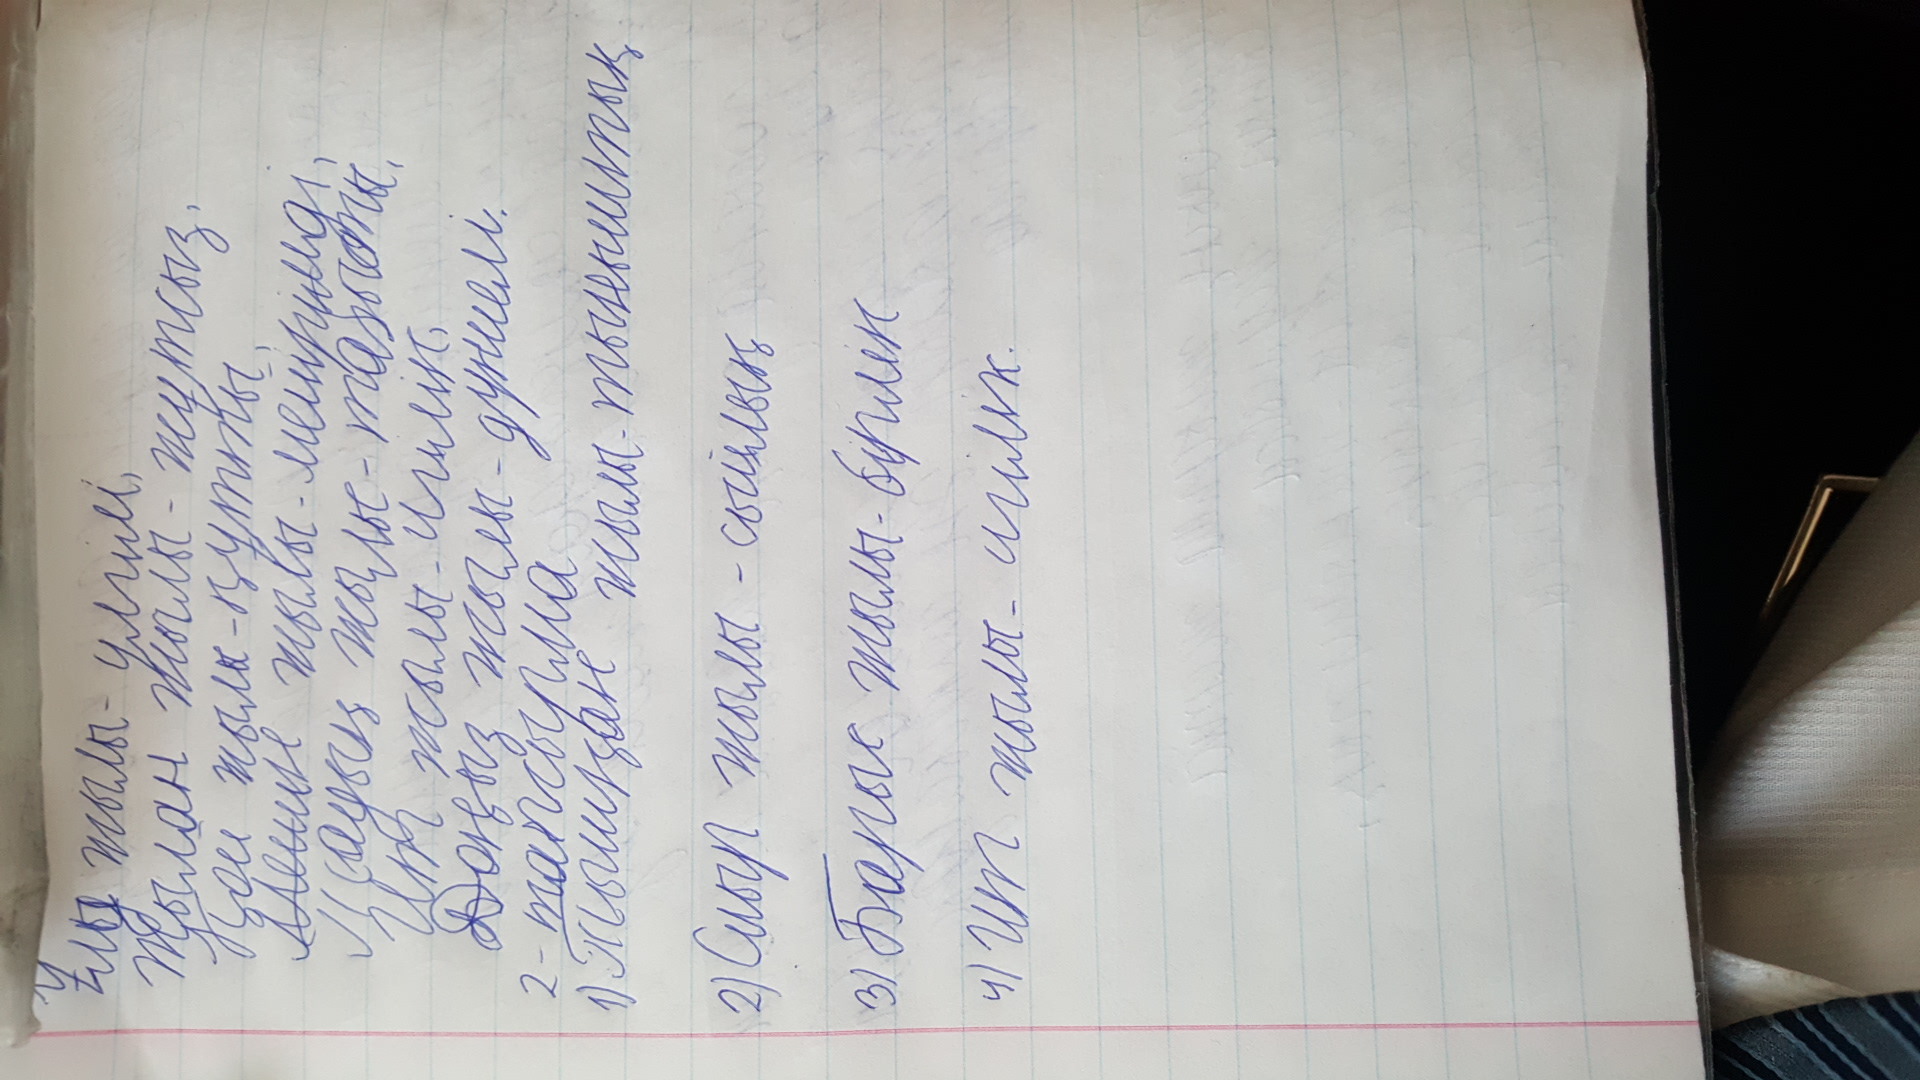 Ұлу жылы - үлгілі,
Жылан жылы - жұтсыз,
Қой жылы - құтты,
Мешін жылы - мейірімді,
Тауық жылы - тағатты,
Ит жылы - игілік,
Доңыз жылы - дүниелі.
2 - тапсырма
1) Тышқан жылы - тыныштық
2) Сиыр жылы - сыйлық
3) Барыс жылы - бірлік
4) Ит жылы - игілік.